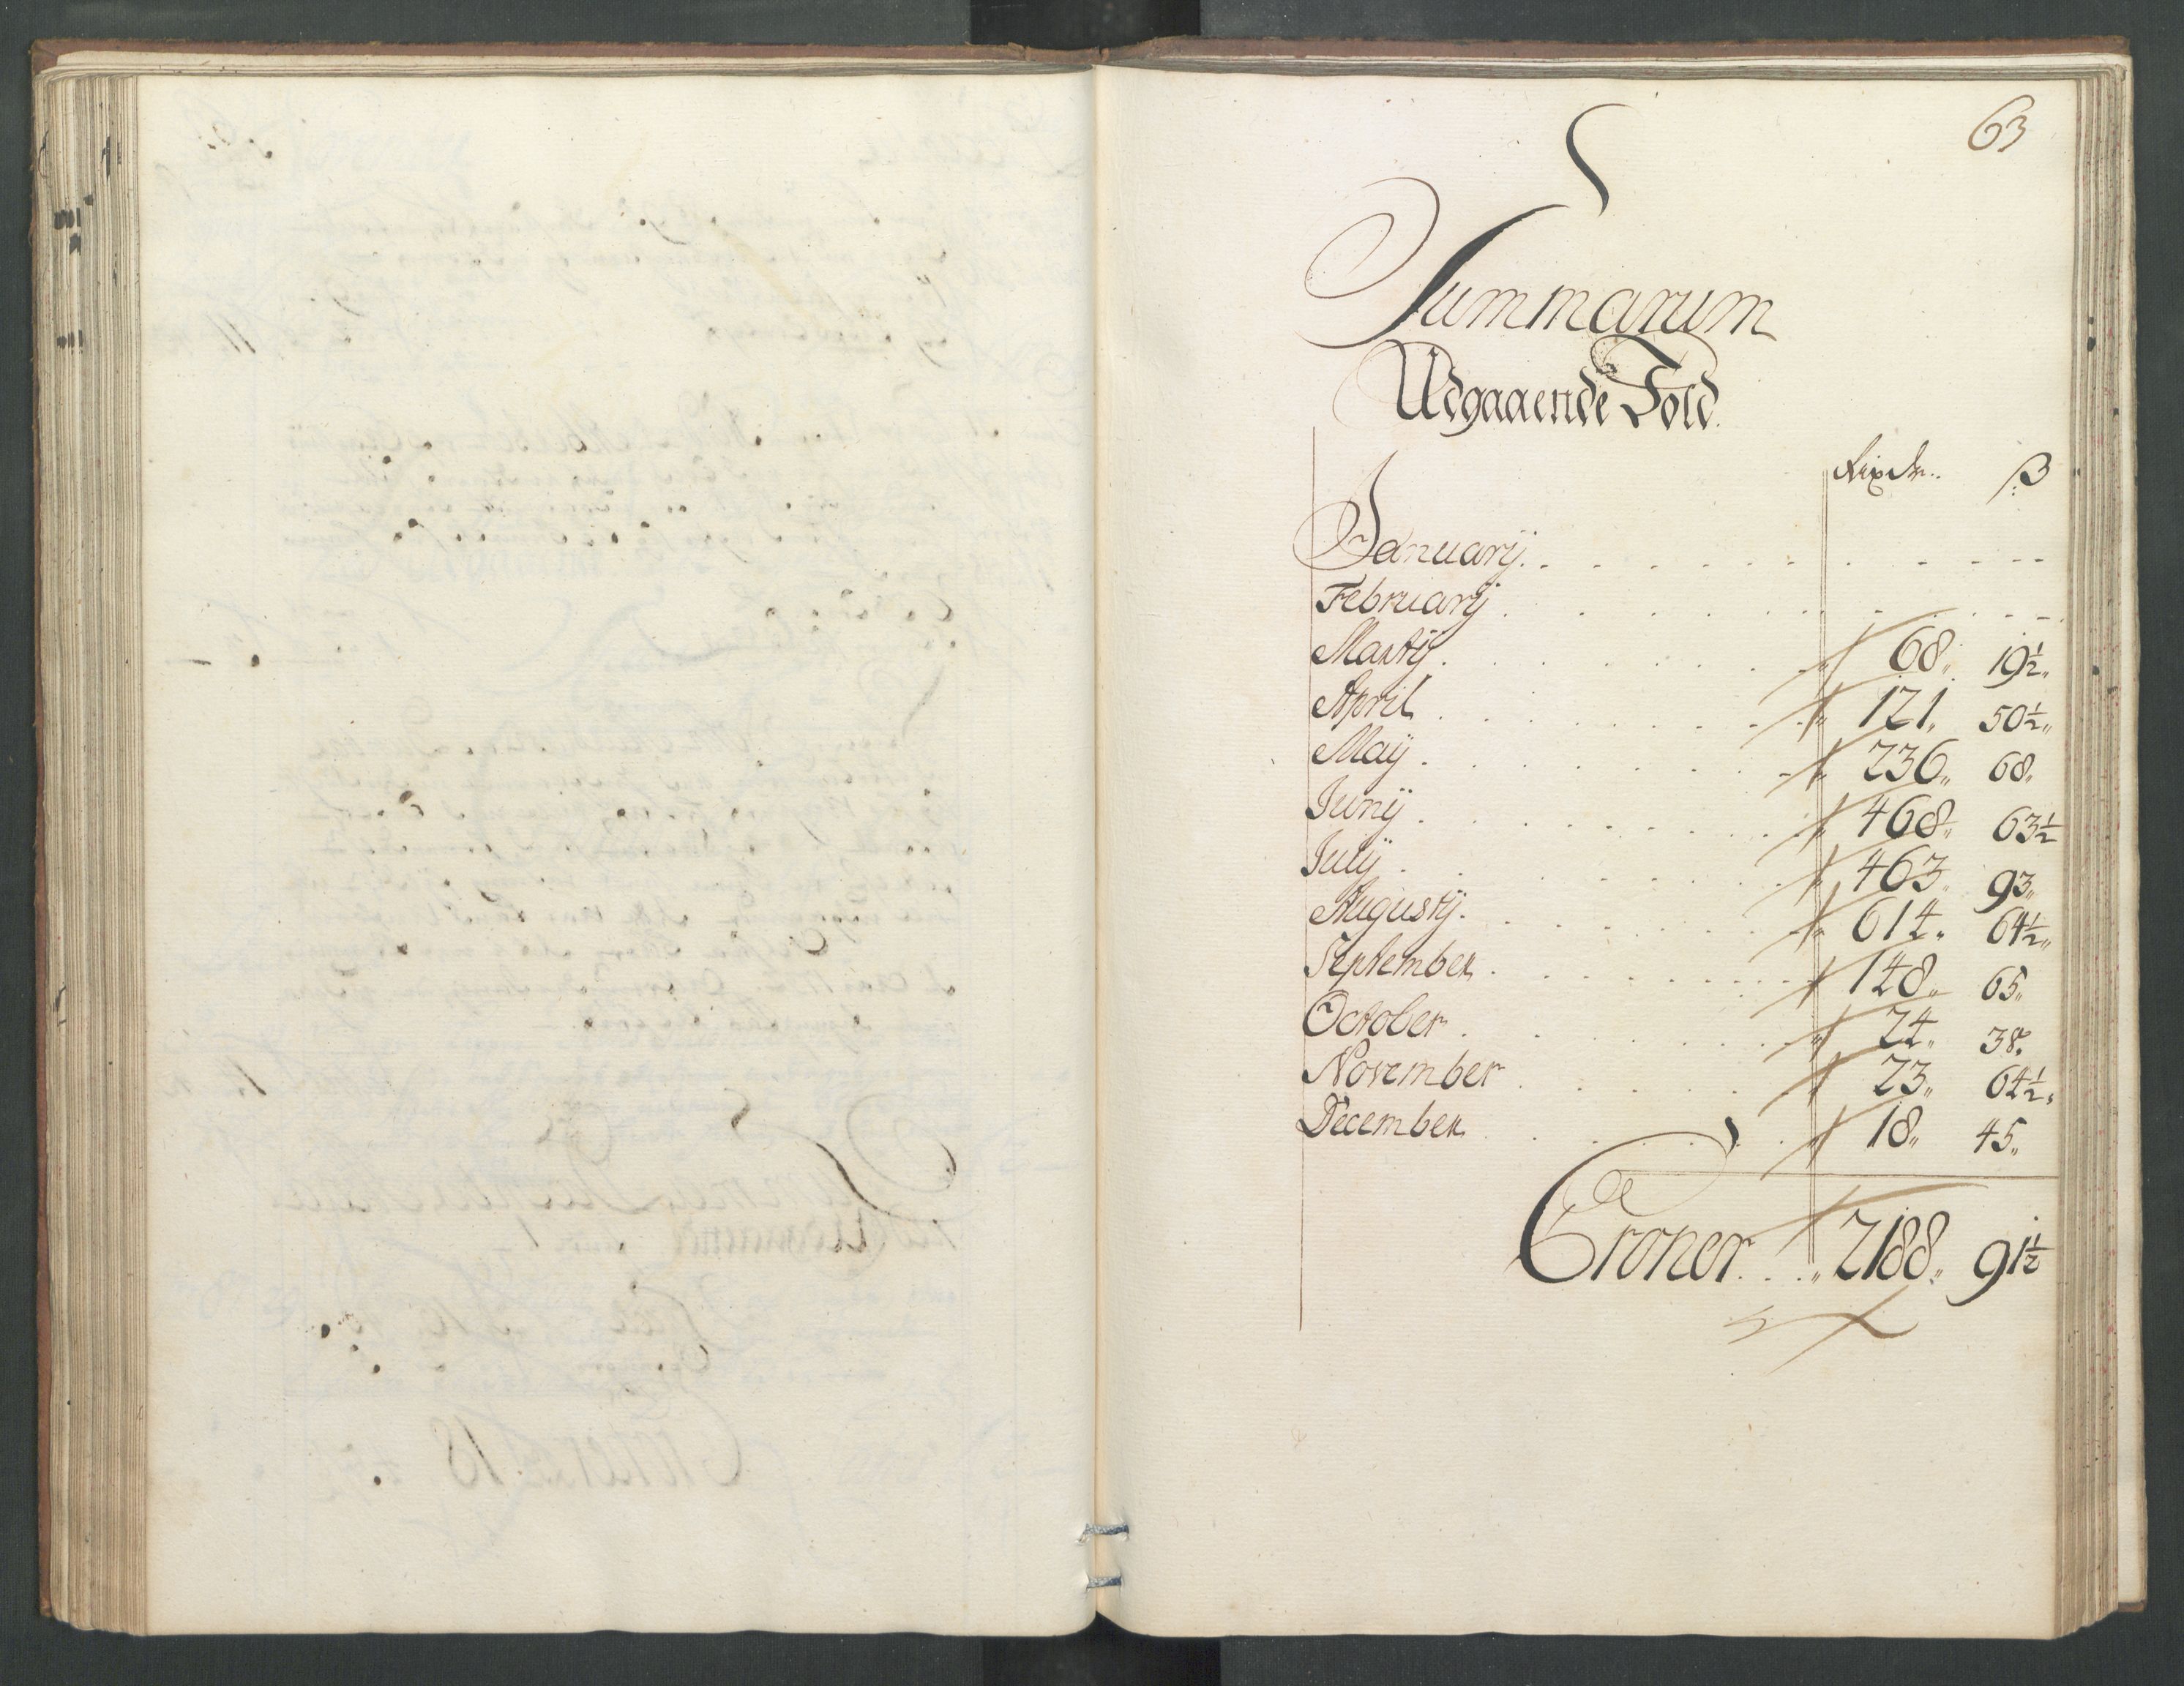 63
Summarum
Udgaaende Told.
Rixdr. ß
Januarij
Februarij
Martij 68 19½
April 121 50½
Maij 236 68
Junij 468 63½
Julij 463 93
Augustij 614 64½
September 148 65
October 24 38
November 23 64½
December 18 45
Croner 2188 91½